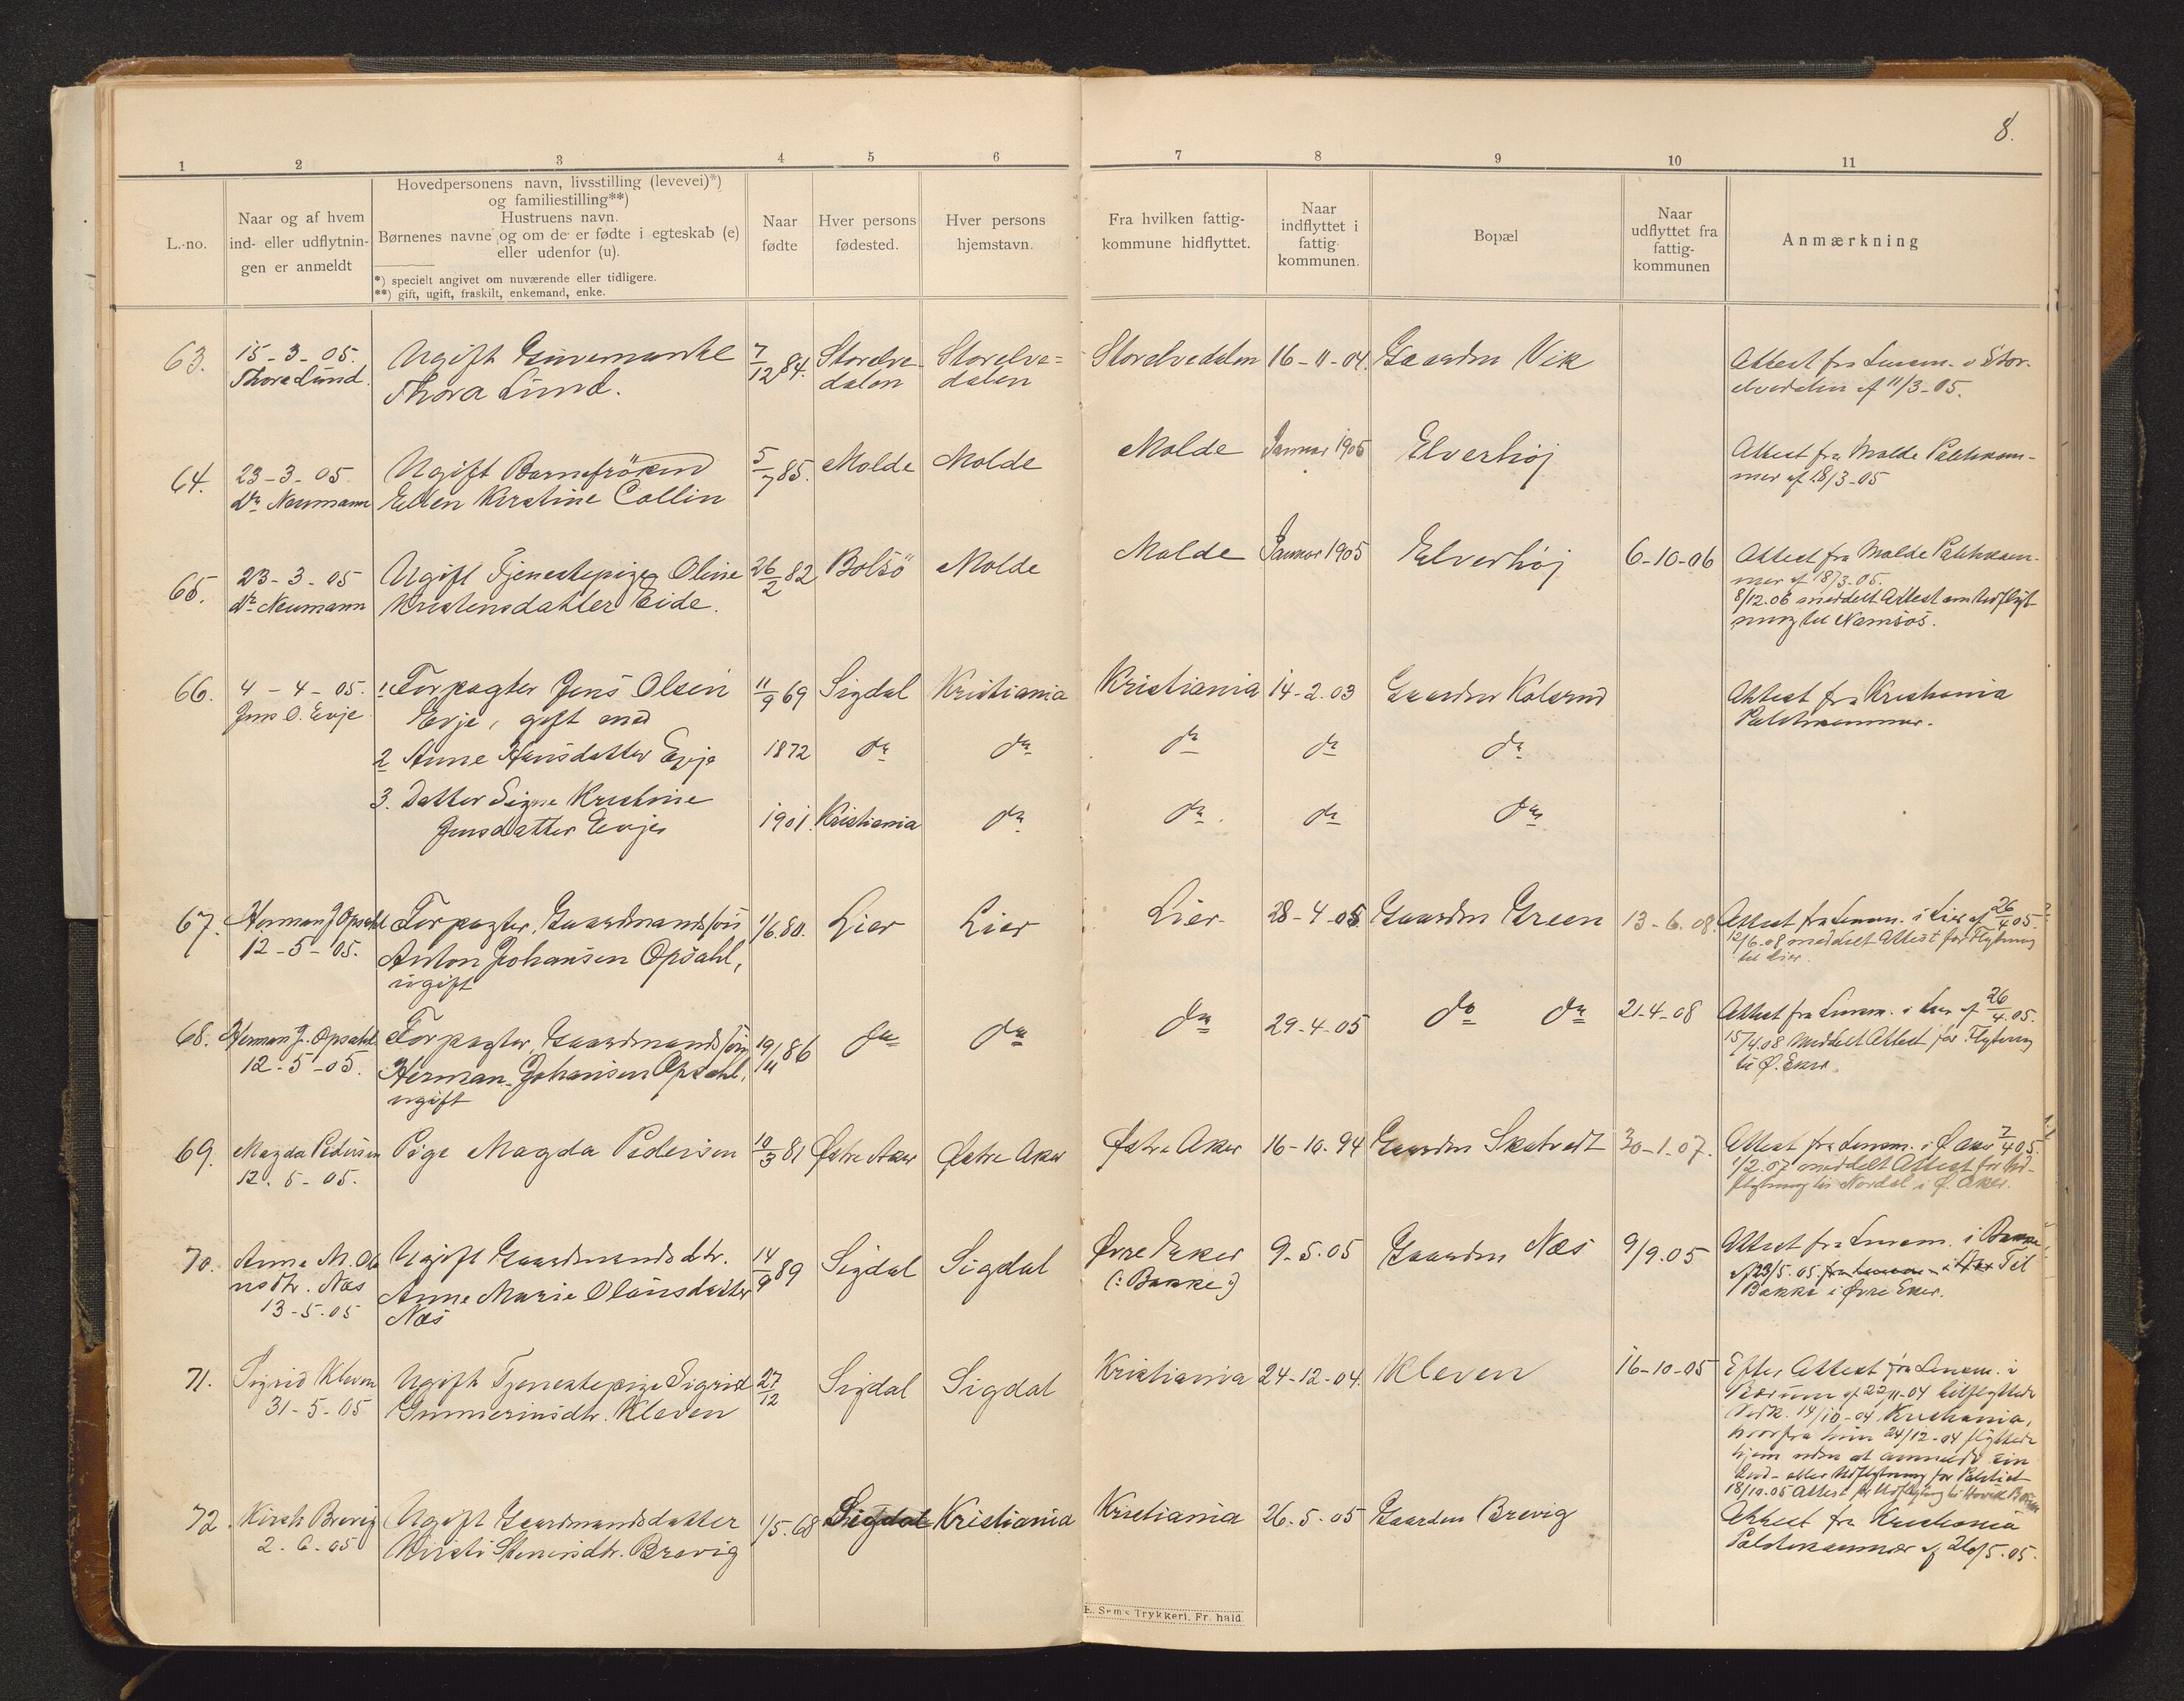 8.
1 2 3 4 5 6 7 8 9 10 11
L.-no.
Naar og af hvem
ind- eller udflytnin-
gen er anmeldt
Hovedpersonens navn, livsstilling (levevei)*)
og familiestilling**)
Hustruens navn.
Børnenes navne og om de er fødte i egteskab (e)
eller udenfor (u).
*) specielt angivet om nuværende eller tidligere.
**) gift, ugift, fraskilt, enkemand, enke.
Naar
fødte
Hver persons
fødested.
Hver persons
hjemstavn.
Fra hvilken fattig-
kommune hidflyttet.
Naar
indflyttet i
fattig-
kommunen.
Bopæl
Naar
udflyttet fra
fattig-
kommunen
Anmærkning
63.
15-3-05.
Thora Lund.
Ugift
Thora Lund.
7/12 84.
Storelve-
dalen
Storelve=
dalen
Storelvedalen
16-11-04.
Gaarden Vik
Attest fra Lensm. i Stor-
elvedalen af 11/3-05.
64.
23-3-05.
Dr. Neumann
Ugift Barnefröken
Ellen Kirstine Collin
5/7 85.
Molde
Molde
Molde
Januar 1905
Elverhöj
Attest fra Molde Politikam-
mer af 18/3-05
65.
23-3-05
Dr. Neumann
Ugift Tjenestepige Oline
Kristensdatter Eide.
26/2 82
Bolsö
Molde
Molde
Januar 1905
Elverhöj
6-10-06
Attest fra Molde Politikam-
mer af 18/3-05.
8/12.06 meddelt Attest om Udflyt-
ning til Namsos.
66.
4-4-05.
Jens O. Evje
1. Forpagter Jens Olsen
Evje, gift med
11/9 69
Sigdal
Kristiania
Kristiania
14-2.03
Gaarden Kolsrud
Attest fra Kristiania
Politikammer.
2 Anne Hansdatter Evje
1872
do
do
do
do
do
3. Datter Signe Kristine
Jensdatter Evje
1901.
Kristiania
do
do
do
do
67.
Herman J Opsahl
12-5-05.
Forpagter, Gaardmandssön
Anton Johansen Opsahl,
ugift
1/6.80.
Lier
Lier
Lier
28-4-05
Gaarden Green
13-6.08
Attest fra Lensm. i Lier af 26/4 05.
12/6-08 meddelt Attest for Flytning
til Lier.
68.
Herman J. Opsahl
12-5-05.
Forpagter, Gaardmandssön
Herman Johansen Opsahl,
ugift
19/11 86
do
do
do
29-4-05
do do
21-4-08
Attest fra Lensm. i Lier af 26/4.05.
15/4.08 Meddelt Attest for Flytning
til Ø. Eker.
69.
Magda Pedersen
12.5-05.
Pige Magda Pedersen
10/3 81
Østre Aker
Østre Aker
Østre Aker
16-10.94
Gaarden Skatvedt
30-1.07.
Attest fra Lensm. i Ø. Aker 7/4 05.
1/2.07 meddelt Attest for Ud-
flytning til Nordal i Ø. Aker.
70.
Anne M. Ola
nsdtr. Næs
13-5.05
Ugift Gaardmandsdtr.
Anne Marie Olausdatter
Næs
14/9 89
Sigdal
Sigdal
Øvre Eker
(: Bakke:)
9-5.05
Gaarden Næs
9/9.05
Attest fra Lensm. i Bakke
af 23/5.05. Til
Bakke i Øvre Eker.
71.
Sigrid Kleven
31-5-05
Ugift Tjenestepige Sigrid
Kleven
27/12
Sigdal
Sigdal
Kristiania
24-12-04.
Kleven
16-10-05
Efter Attest fra Lensm. i
Bærum af 22/11-04 tilflyttede
Vedk. 14/10-04 Kristiania,
hvorfra hun 24/12-04 flyttede
hjem uden at anmelde sin
Ind- eller Udflytning for Politiet
18/10.05 Attest for Udflytning til
72.
Kirsti Brevig
2.6.05
Ugift Gaardmandsdatter
Kirsti Stenersdtr. Brevig
1/5.68
Sigdal
Kristiania
Kristiania
26.5-05
Gaarden Brevig
Attest fra Kristiania
Politikammer af 26/5.05.
E. Sems Trykkeri, Fr. hald.